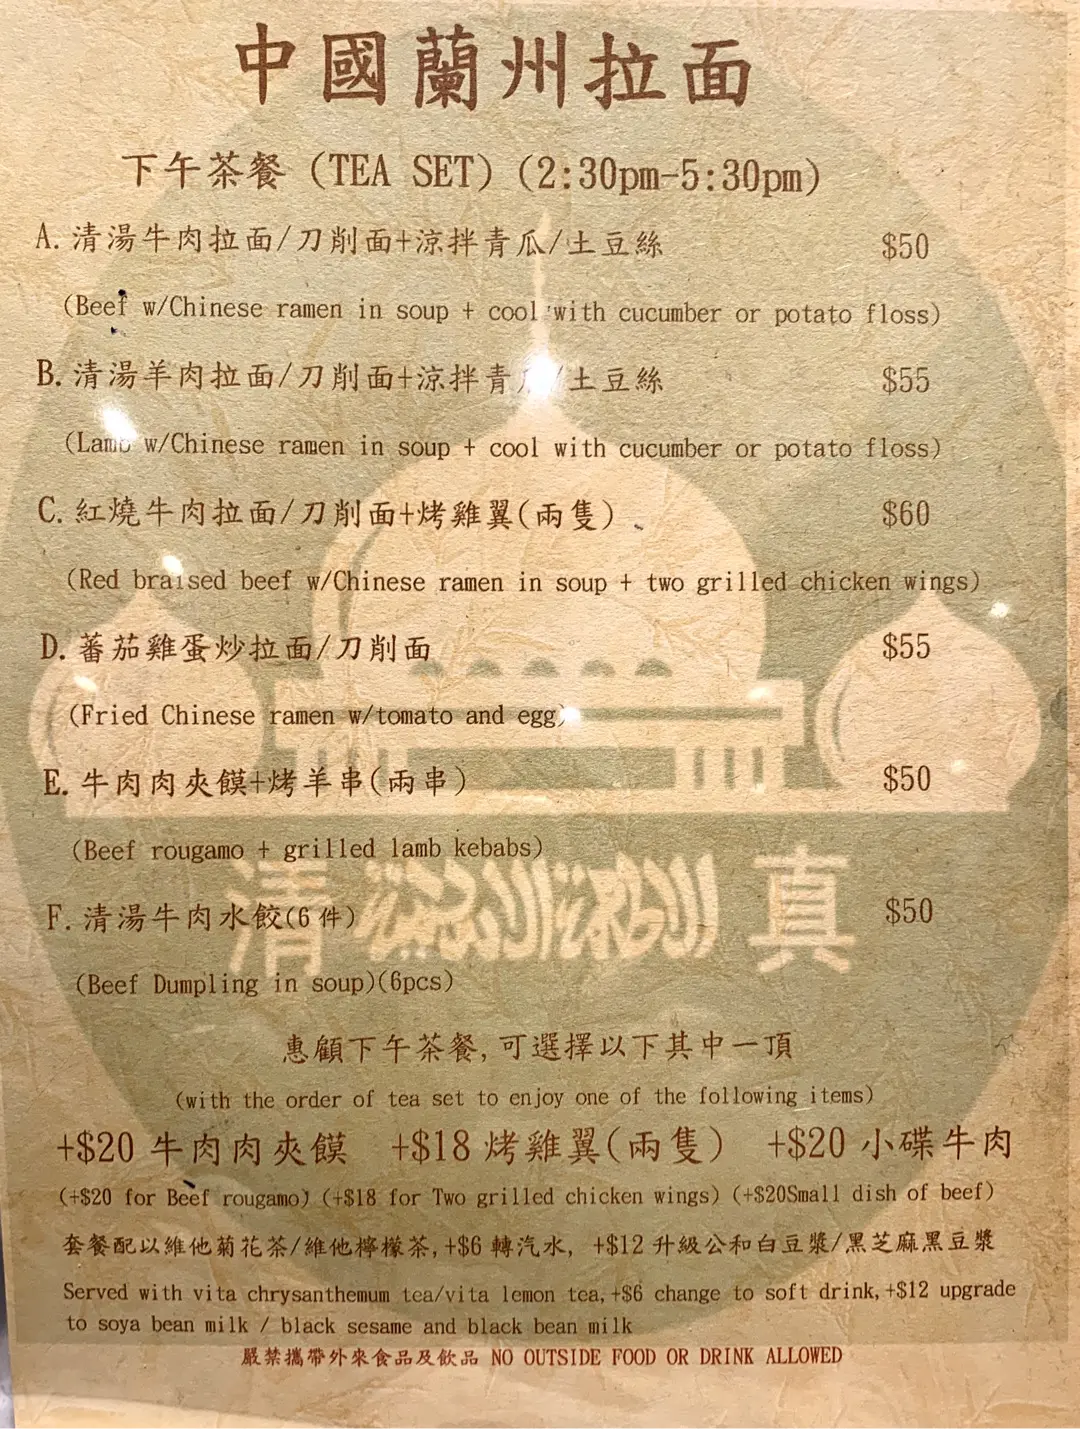 中國蘭州拉面
下午茶餐 (TEA SET) (2:30pm-5:30pm)
A. 清湯牛肉拉面/刀削面+涼拌青瓜/土豆絲 $50
(Beef w/Chinese ramen in soup + cool with cucumber or potato floss)
B. 清湯羊肉拉面/刀削面+涼拌青 /土豆絲 $55
(Lamb w/Chinese ramen in soup + cool with cucumber or potato floss)
C. 紅燒牛肉拉面/刀削面+烤雞翼(兩隻) $60
(Red braised beef w/Chinese ramen in soup + two grilled chicken wings)
D. 蕃茄雞蛋炒拉面/刀削面 $55
(Fried Chinese ramen w/tomato and egg)
E. 牛肉肉夾饃+烤羊串(兩串) $50
(Beef rougamo + grilled lamb kebabs)
清 真
F. 清湯牛肉水餃(6件) $50
(Beef Dumpling in soup)(6pcs)
惠顧下午茶餐,可選擇以下其中一項
(with the order of tea set to enjoy one of the following items)
+$20 牛肉肉夾饃 +$18 烤雞翼(兩隻) +$20 小碟牛肉
(+$20 for Beef rougamo) (+$18 for Two grilled chicken wings) (+$20Small dish of beef)
套餐配以維他菊花茶/維他檸檬茶,+$6 轉汽水, +$12 升級公和白豆漿/黑芝麻黑豆漿
Served with vita chrysanthemum tea/vita lemon tea,+$6 change to soft drink,+$12 upgrade
to soya bean milk / black sesame and black bean milk
嚴禁攜帶外來食品及飲品 NO OUTSIDE FOOD OR DRINK ALLOWED